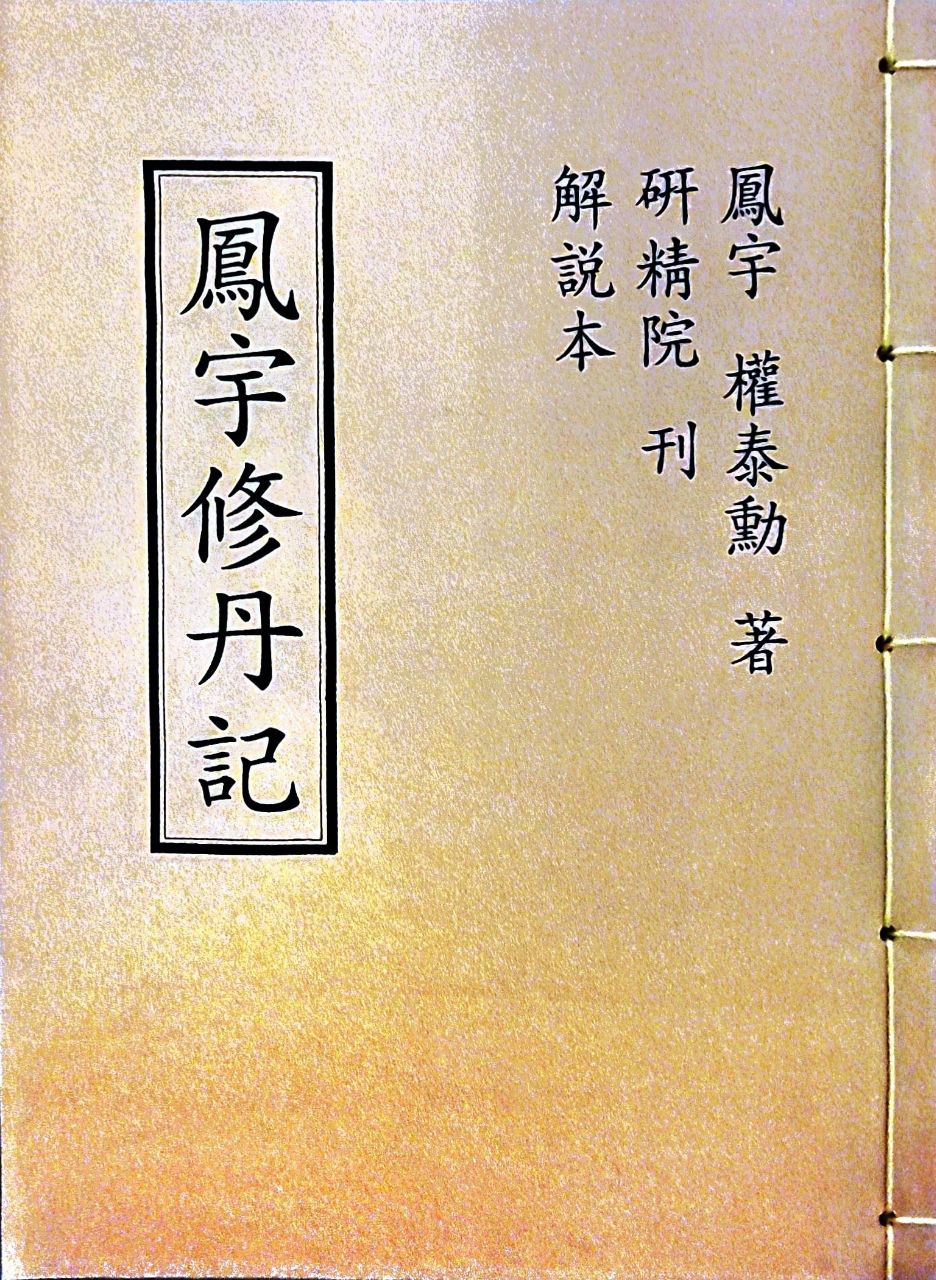 鳳宇 權泰勳 著
硏精院 刊
解説本
鳳宇修丹記